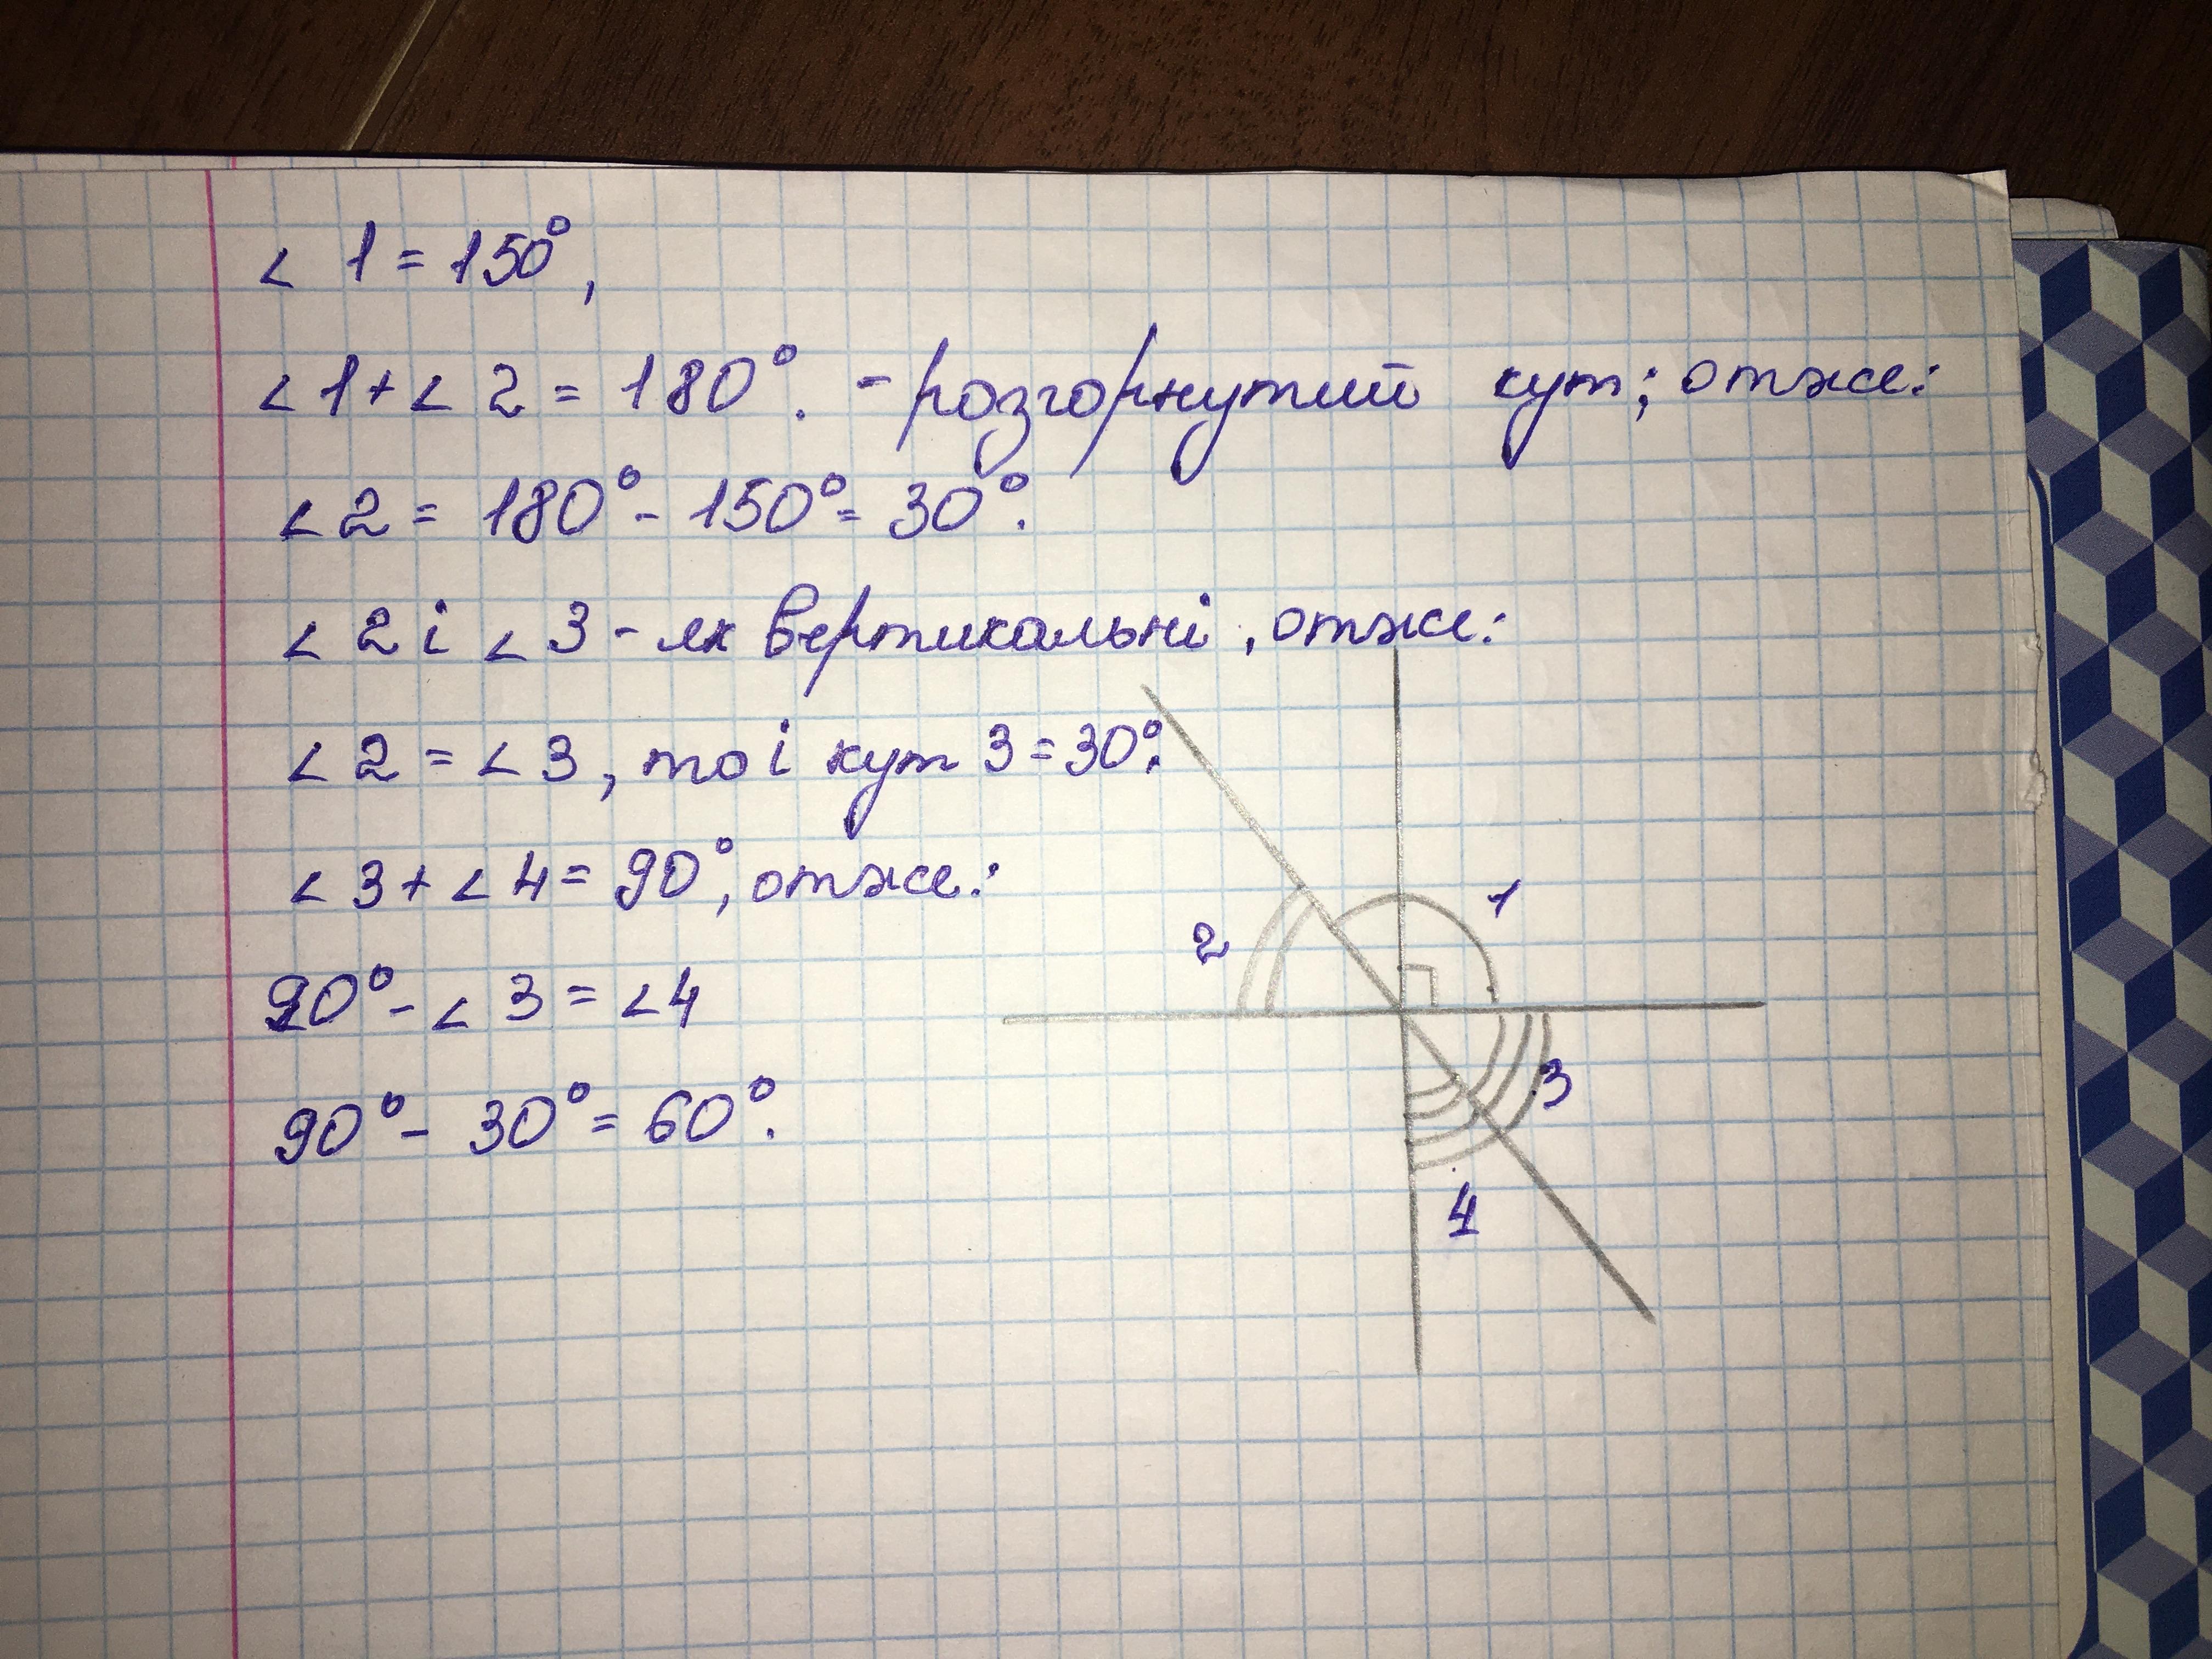 ∠ 1 = 150°,
∠ 1 + ∠ 2 = 180°. - розгорнутий кут; отже:
∠ 2 = 180° - 150° = 30°.
∠ 2 і ∠ 3 - як вертикальні, отже:
∠ 2 = ∠ 3, то і кут 3 = 30°.
∠ 3 + ∠ 4 = 90°, отже:
90° - ∠ 3 = ∠ 4
90° - 30° = 60°.
1
2
3
4